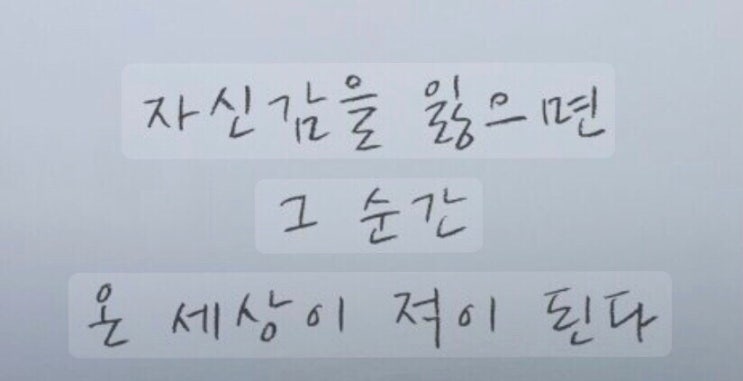 자신감을 잃으면
그 순간
온 세상이 적이 된다